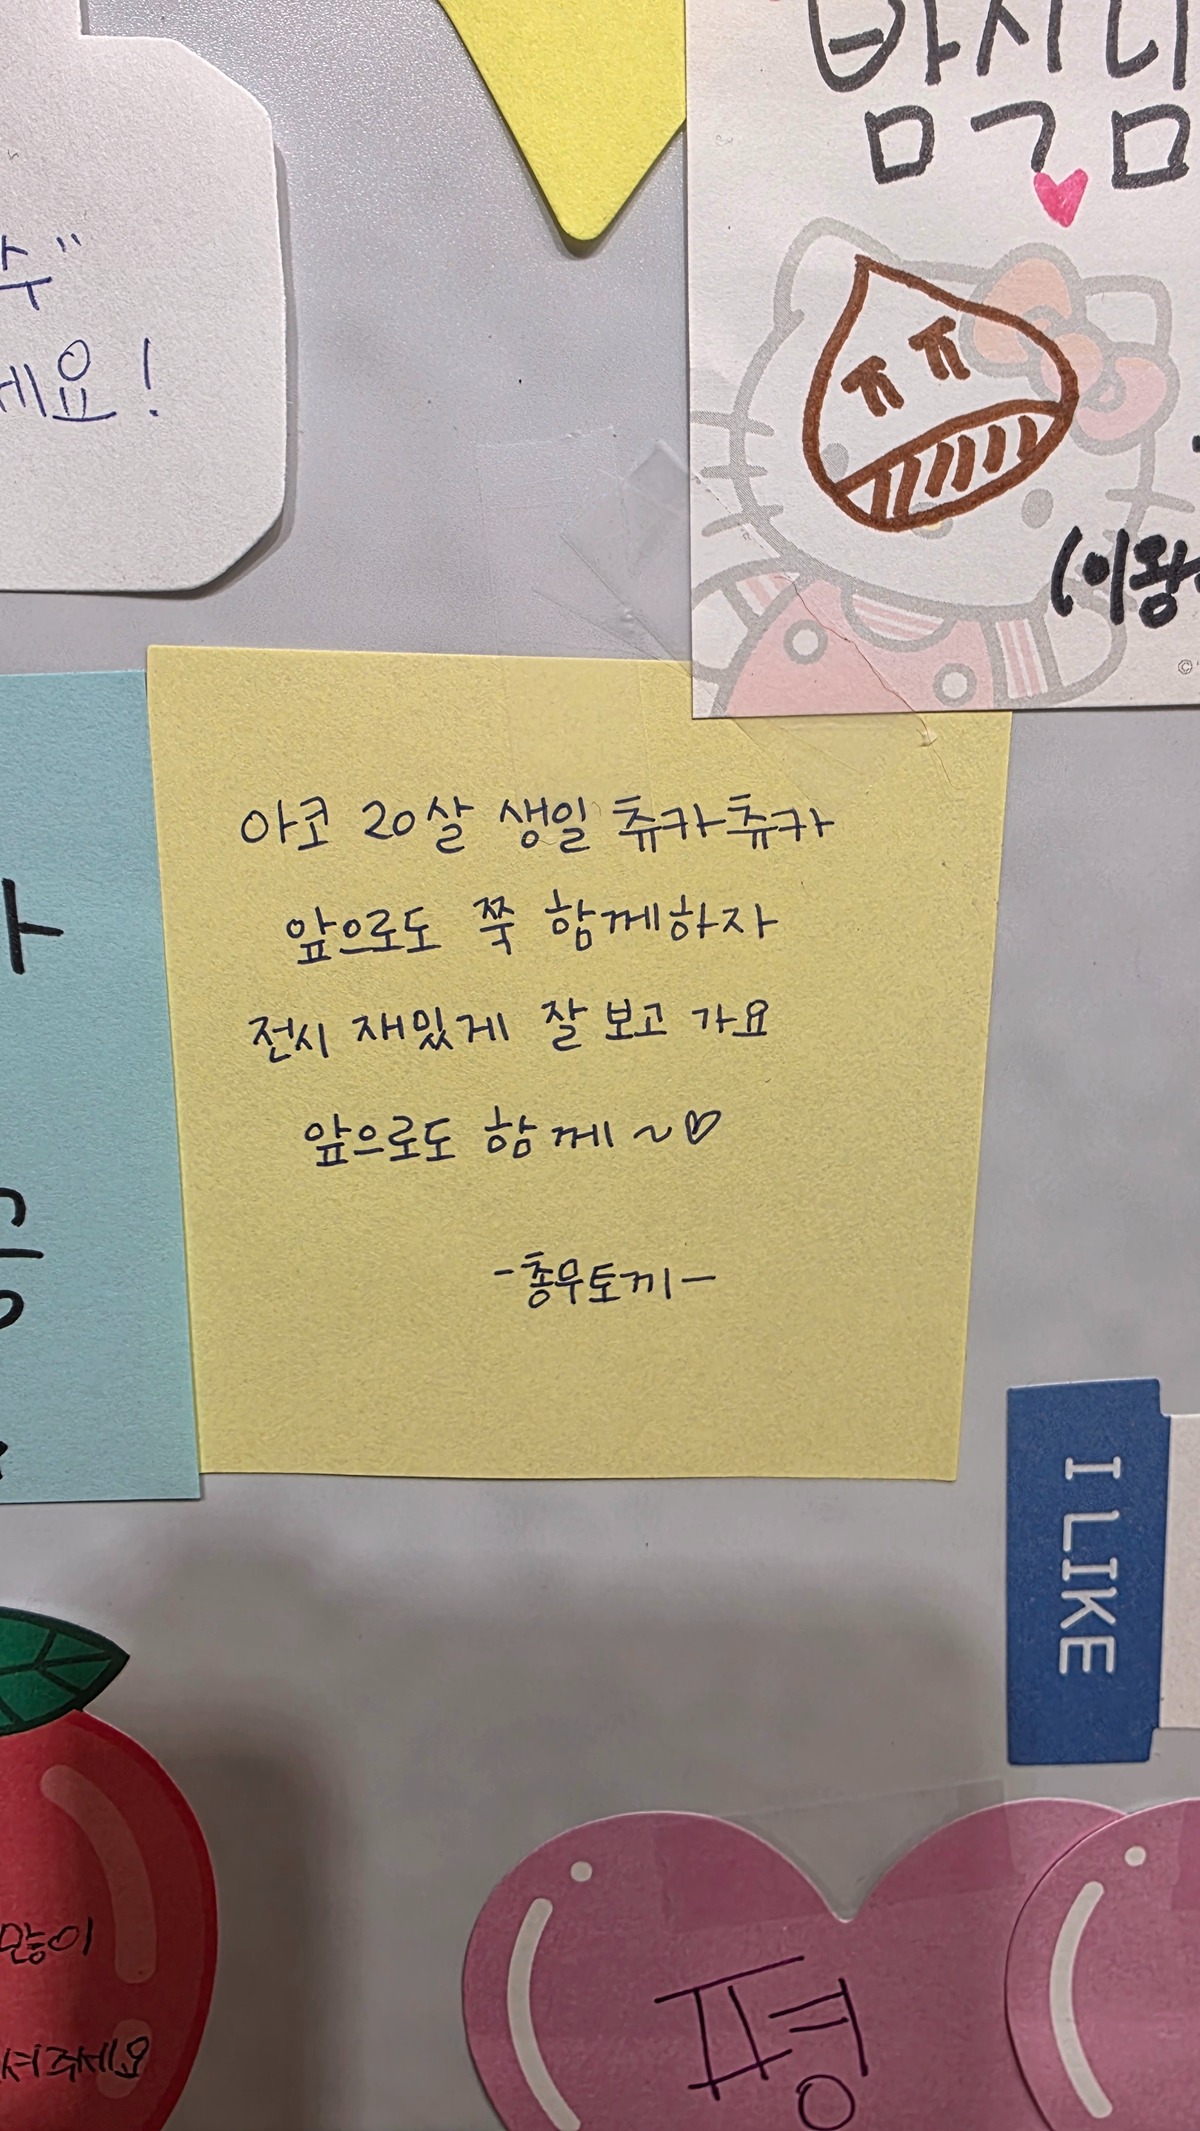 밤시니
ㅁㄱㅁ
세요!
(이왕
아코 20살 생일 츄카츄카
앞으로도 쭉 함께하자
전시 재밌게 잘 보고 가요
앞으로도 함께~♡
-총무토끼-
I LIKE
많이
주세요
평